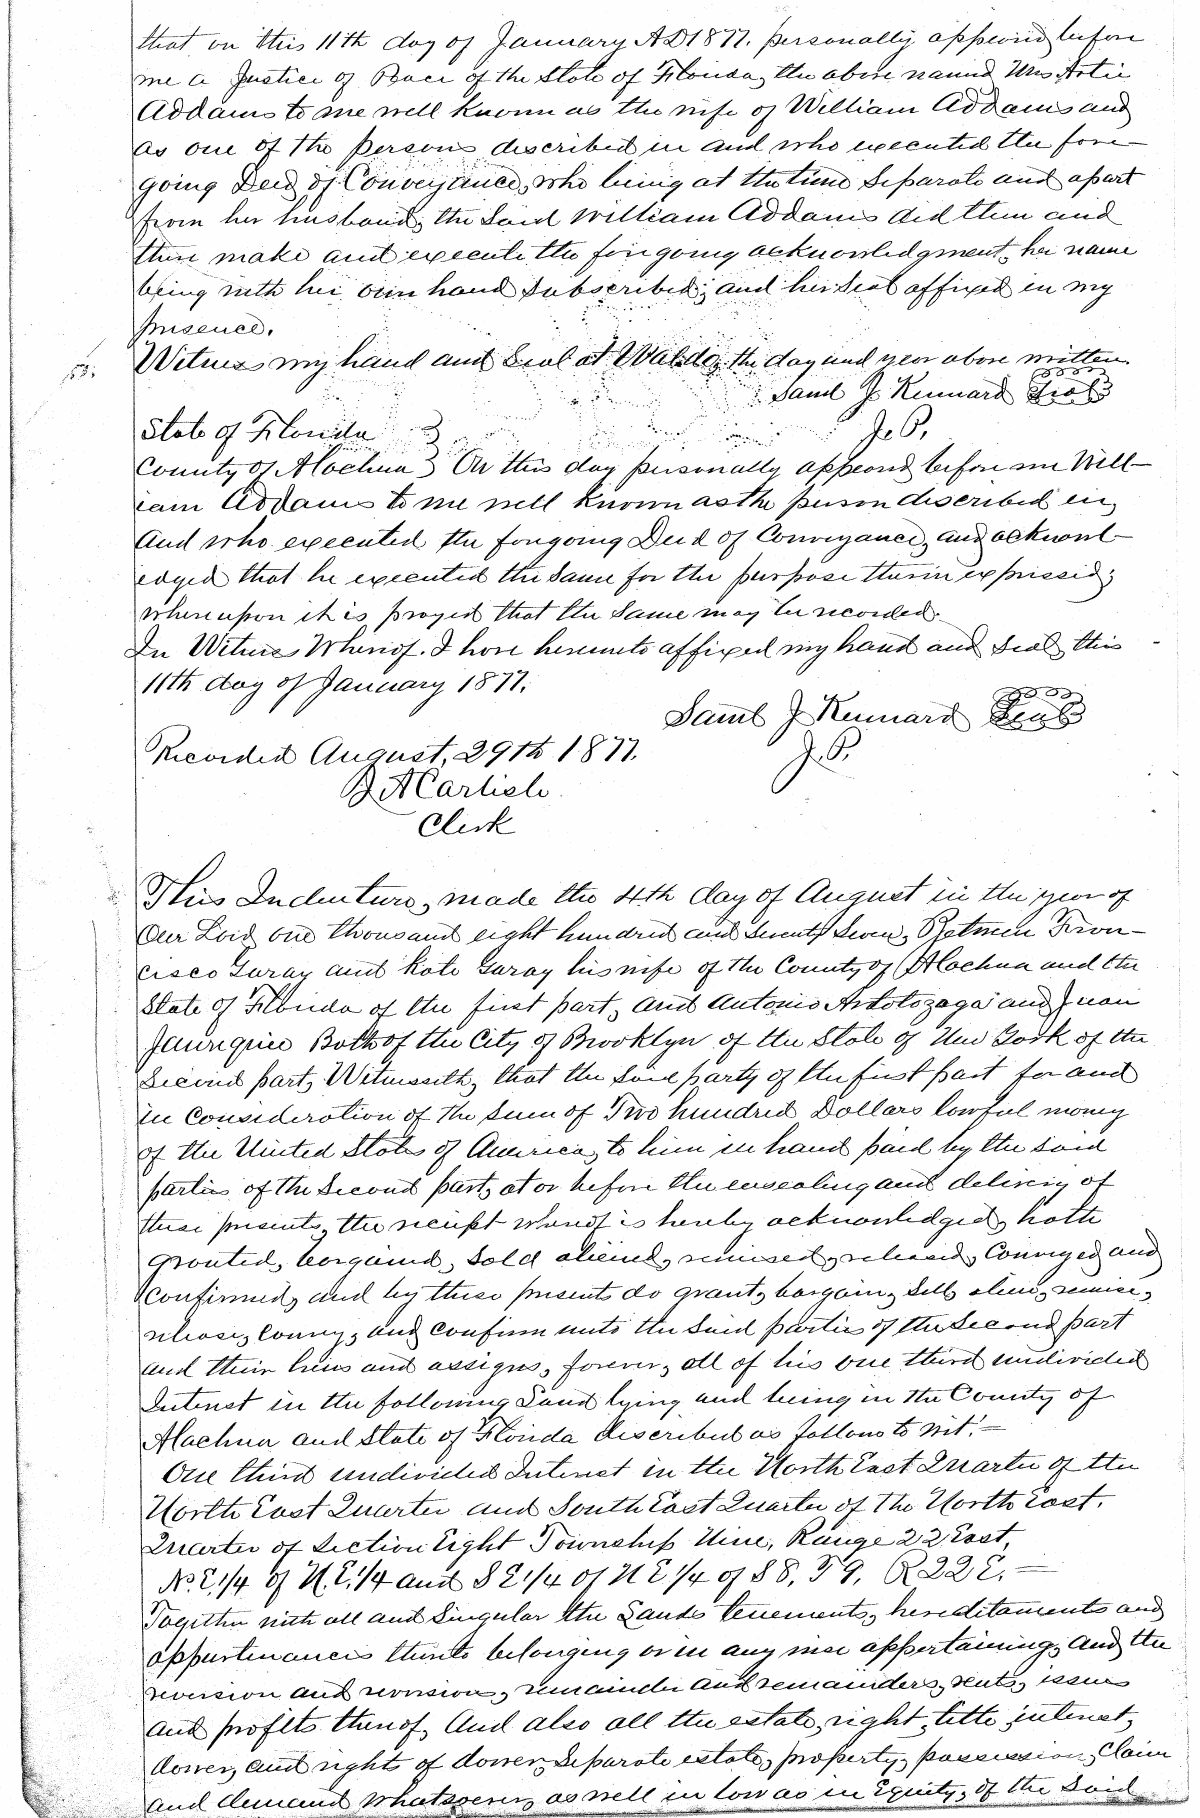 that on this 11th day of January AD 1877. personally appeared before
me a Justice of Peace of the State of Florida, the above named Mrs Artie
Addams to me well known as the wife of William Addams and
as one of the persons discribed in and who executed the fore-
going Deed of Conveyance, who being at the time Separate and apart
from her husband, the Said William Addams did then and
there make and execute the forgoing acknowledgment, her name
being with her own hand Subscribed; and her Seal affixed in my
presence.
ss. Witness my hand and Seal at Waldo, the day and year above written.
Saml J Kennard Seal
J. P.
State of Florida }
County of Alachua } On this day personally appeared before me Will-
iam Addams to me well known as the person discribed in,
And who executed the forgoing Deed of Conveyance, and acknowl-
edged that he executed the Same for the purpose therin expressed;
whereupon it is prayed that the Same may be recorded.
In Witness Whereof. I have hereunto affixed my hand and Seal, this
11th day of January 1877.
Saml J Kennard Seal
J. P.
Recorded August, 29th 1877.
J A Carlisle
Clerk
This Indenture, made the 4th day of August in the year of
Our Lord one thousand eight hundred and Seventy Seven, Between Fran-
cisco Garay and Kate Garay his wife of the County of Alachua and the
State of Florida of the first part, and Antonio Ardotozaga and Juan
Jaureguice Both of the City of Brooklyn of the State of New York of the
Second part, Witnesseth, that the Said party of the first part for and
in Consideration of the Sum of Two hundred Dollars lawful money
of the United States of America, to him in hand paid by the said
parties of the Second part, at or before the ensealing and delivery of
these presents, the receipt whereof is hereby acknowledged, hath
granted, bargained, Sold aliened, remised, released, Conveyed and
Confirmed, and by these presents do grant, bargain, Sell, alien, remise,
release, Convey, and Confirm unto the Said parties of the Second part
and their heirs and assigns, forever, all of his one third undivided
Interest in the following Land lying and being in the County of
Alachua and State of Florida discribed as follows to wit:-
One third undivided Interest in the North East Quarter of the
North East Quarter and South East Quarter of the North East.
Quarter of Section Eight Township Nine, Range 22 East,
N. E. 1/4 of N. E. 1/4 and S E 1/4 of N E 1/4 of S 8. T 9. R 22 E. -
Togither with all and Singular the Lands tenements, hereditaments and
appurtenances thereto belonging or in any wise appertaining, and the
reversion and reversions, remainder and remainders, rents, issues
and profits thereof, And also all the estate, right, title, interest,
dower, and rights of dower, Separate estate, property, possession, Claim
and demand whatsoever, as well in law as in Equity, of the Said